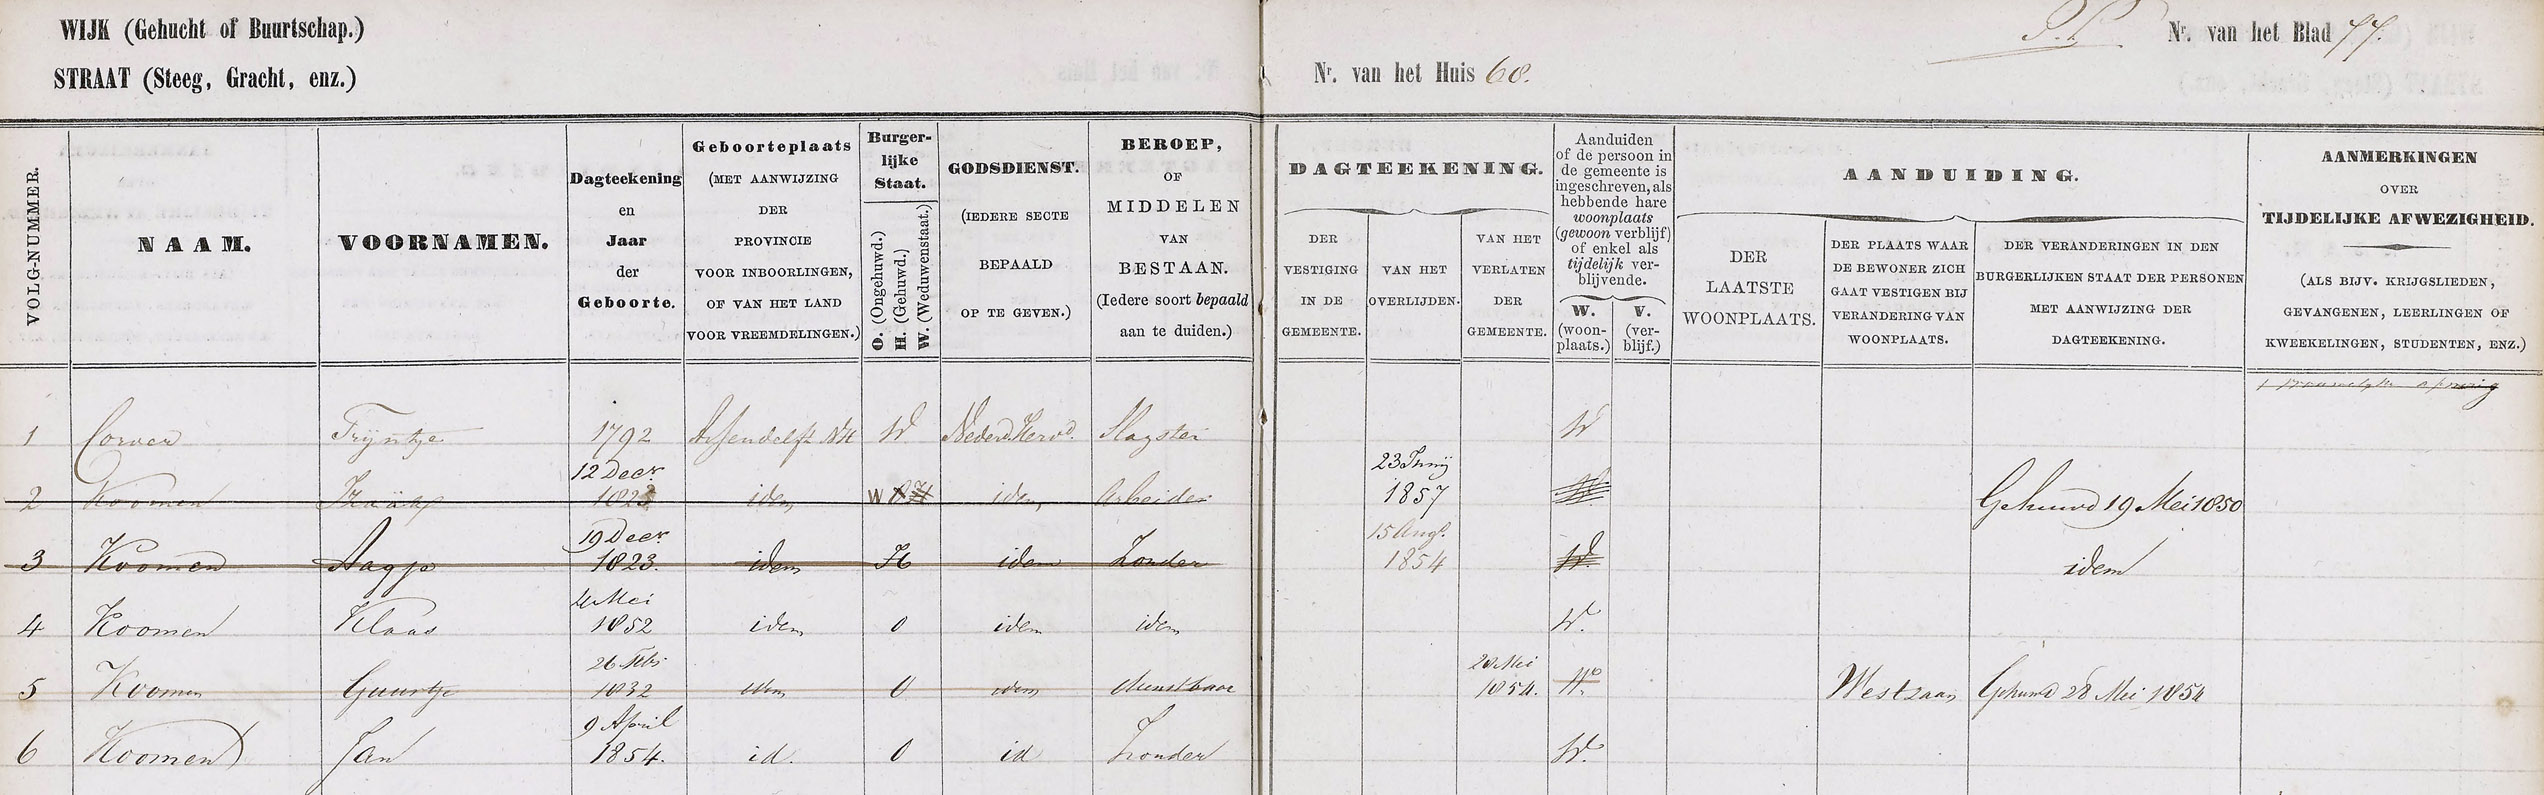 WIJK (Gehucht of Buurtschap.)
STRAAT (Steeg, Gracht, enz.)
Nr. van het Huis 68.
Nr. van het Blad 77.
VOLG-NUMMER.
NAAM.
VOORNAMEN.
Dagteekening
en
Jaar
der
Geboorte.
Geboorteplaats
(MET AANWIJZING
DER
PROVINCIE
VOOR INBOORLINGEN,
OF VAN HET LAND
VOOR VREEMDELINGEN.)
Burger-
lijke
Staat.
O. (Ongehuwd.)
H. (Gehuwd.)
W. (Weduwenstaat.)
GODSDIENST.
(IEDERE SECTE
BEPAALD
OP TE GEVEN.)
BEROEP,
OF
MIDDELEN
VAN
BESTAAN.
(Iedere soort bepaald
aan te duiden.)
DAGTEEKENING.
DER
VESTIGING
IN DE
GEMEENTE.
VAN HET
OVERLIJDEN.
VAN HET
VERLATEN
DER
GEMEENTE.
Aanduiden
of de persoon in
de gemeente is
ingeschreven, als
hebbende hare
woonplaats
(gewoon verblijf)
of enkel als
tijdelijk ver-
blijvende.
W.
(woon-
plaats.)
V.
(ver-
blijf.)
AANDUIDING.
DER
LAATSTE
WOONPLAATS.
DER PLAATS WAAR
DE BEWONER ZICH
GAAT VESTIGEN BIJ
VERANDERING VAN
WOONPLAATS.
DER VERANDERINGEN IN DEN
BURGERLIJKEN STAAT DER PERSONEN
MET AANWIJZING DER
DAGTEEKENING.
AANMERKINGEN
OVER
TIJDELIJKE AFWEZIGHEID.
(ALS BIJV. KRIJGSLIEDEN,
GEVANGENEN, LEERLINGEN OF
KWEEKELINGEN, STUDENTEN, ENZ.)
1 Corver Trijntje 1792 Assendelft NH W Nederd. Hervd. Slagster W
12 Decr. 23 Junij
2 Koomen idem W idem Arbeider 1857 W Gehuwd 19 Mei 1850
19 Decr. 15 Augt.
3 Koomen Aagje 1823. idem H idem Zonder 1854 W. idem
4 Mei
4 Koomen Klaas 1852 idem O idem idem W.
26 Feb. 28 Mei
5 Koomen Guurtje 1832 idem O idem dienstbaar 1854. W. Westzaan Gehuwd 28 Mei 1854
9 April
6 Koomen Jan 1854. id. O id Zonder W.